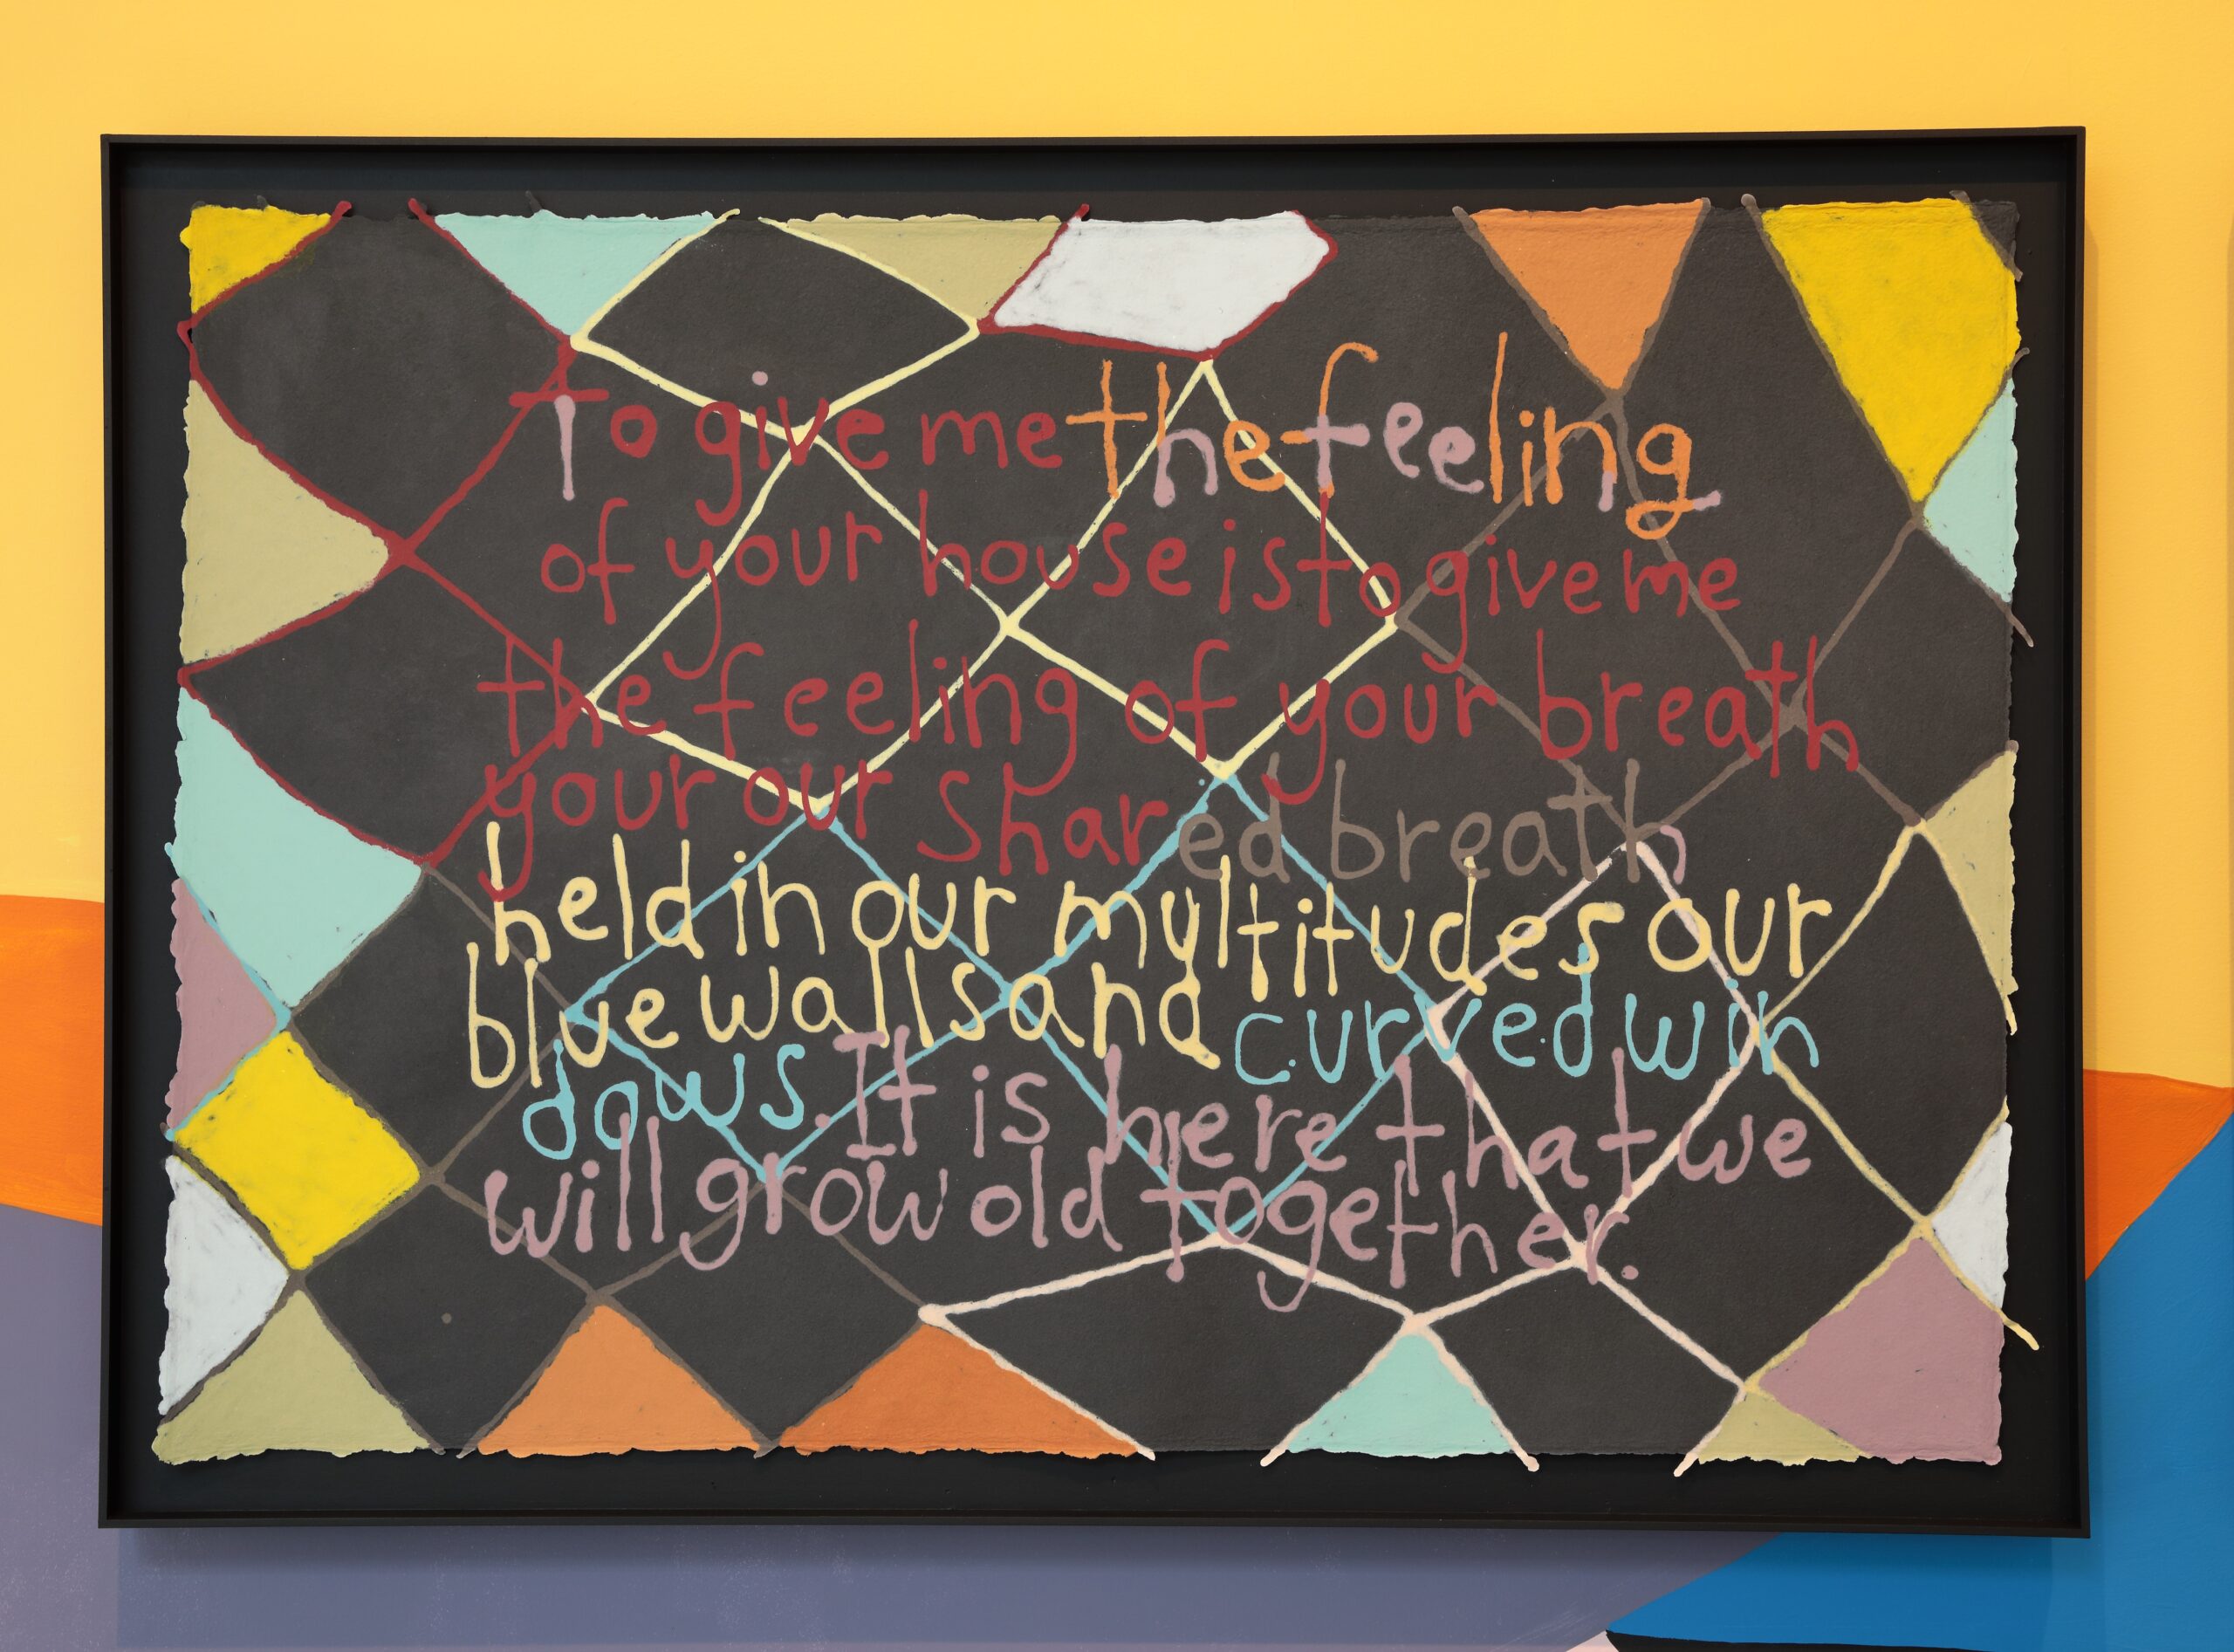 To give me the feeling
of your house is to give me
the feeling of your breath
your our shared breath
held in our multitudes our
blue walls and curved win
dows. It is here that we
will grow old together.